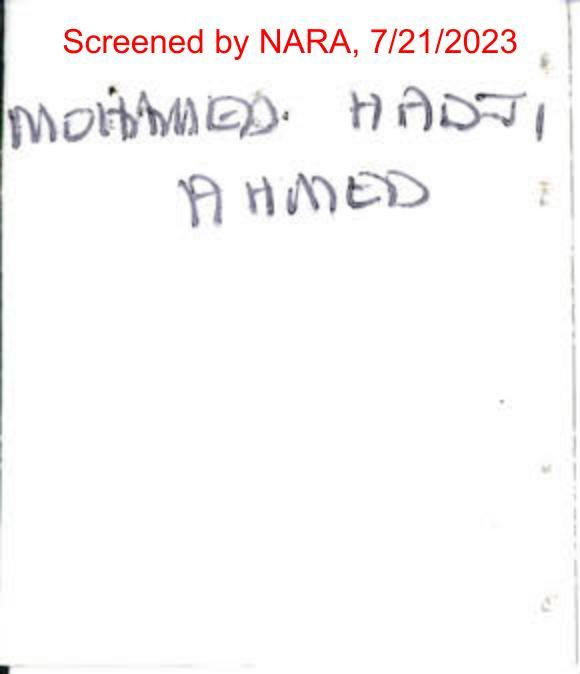 Screened by NARA, 7/21/2023
MOHAMMED. HADJI
AHMED